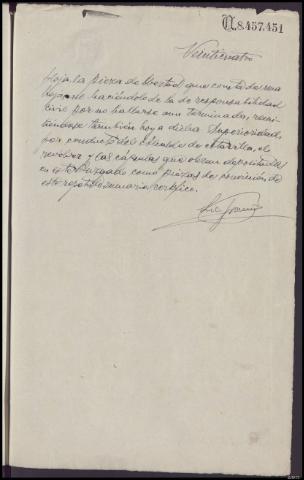 U.8.457.451
Veinticuatro
foja la pieza de libertad que consta de una
no haciéndolo de la de responsabilidad
civil por no hallarse aun terminada, remi-
tiendose tambien hoy a dicha Superioridad,
por conducto del de el
revolver y las cápsulas que obran depositadas
en este Juzgado como piezas de convicción de
este repetido sumario certifico.